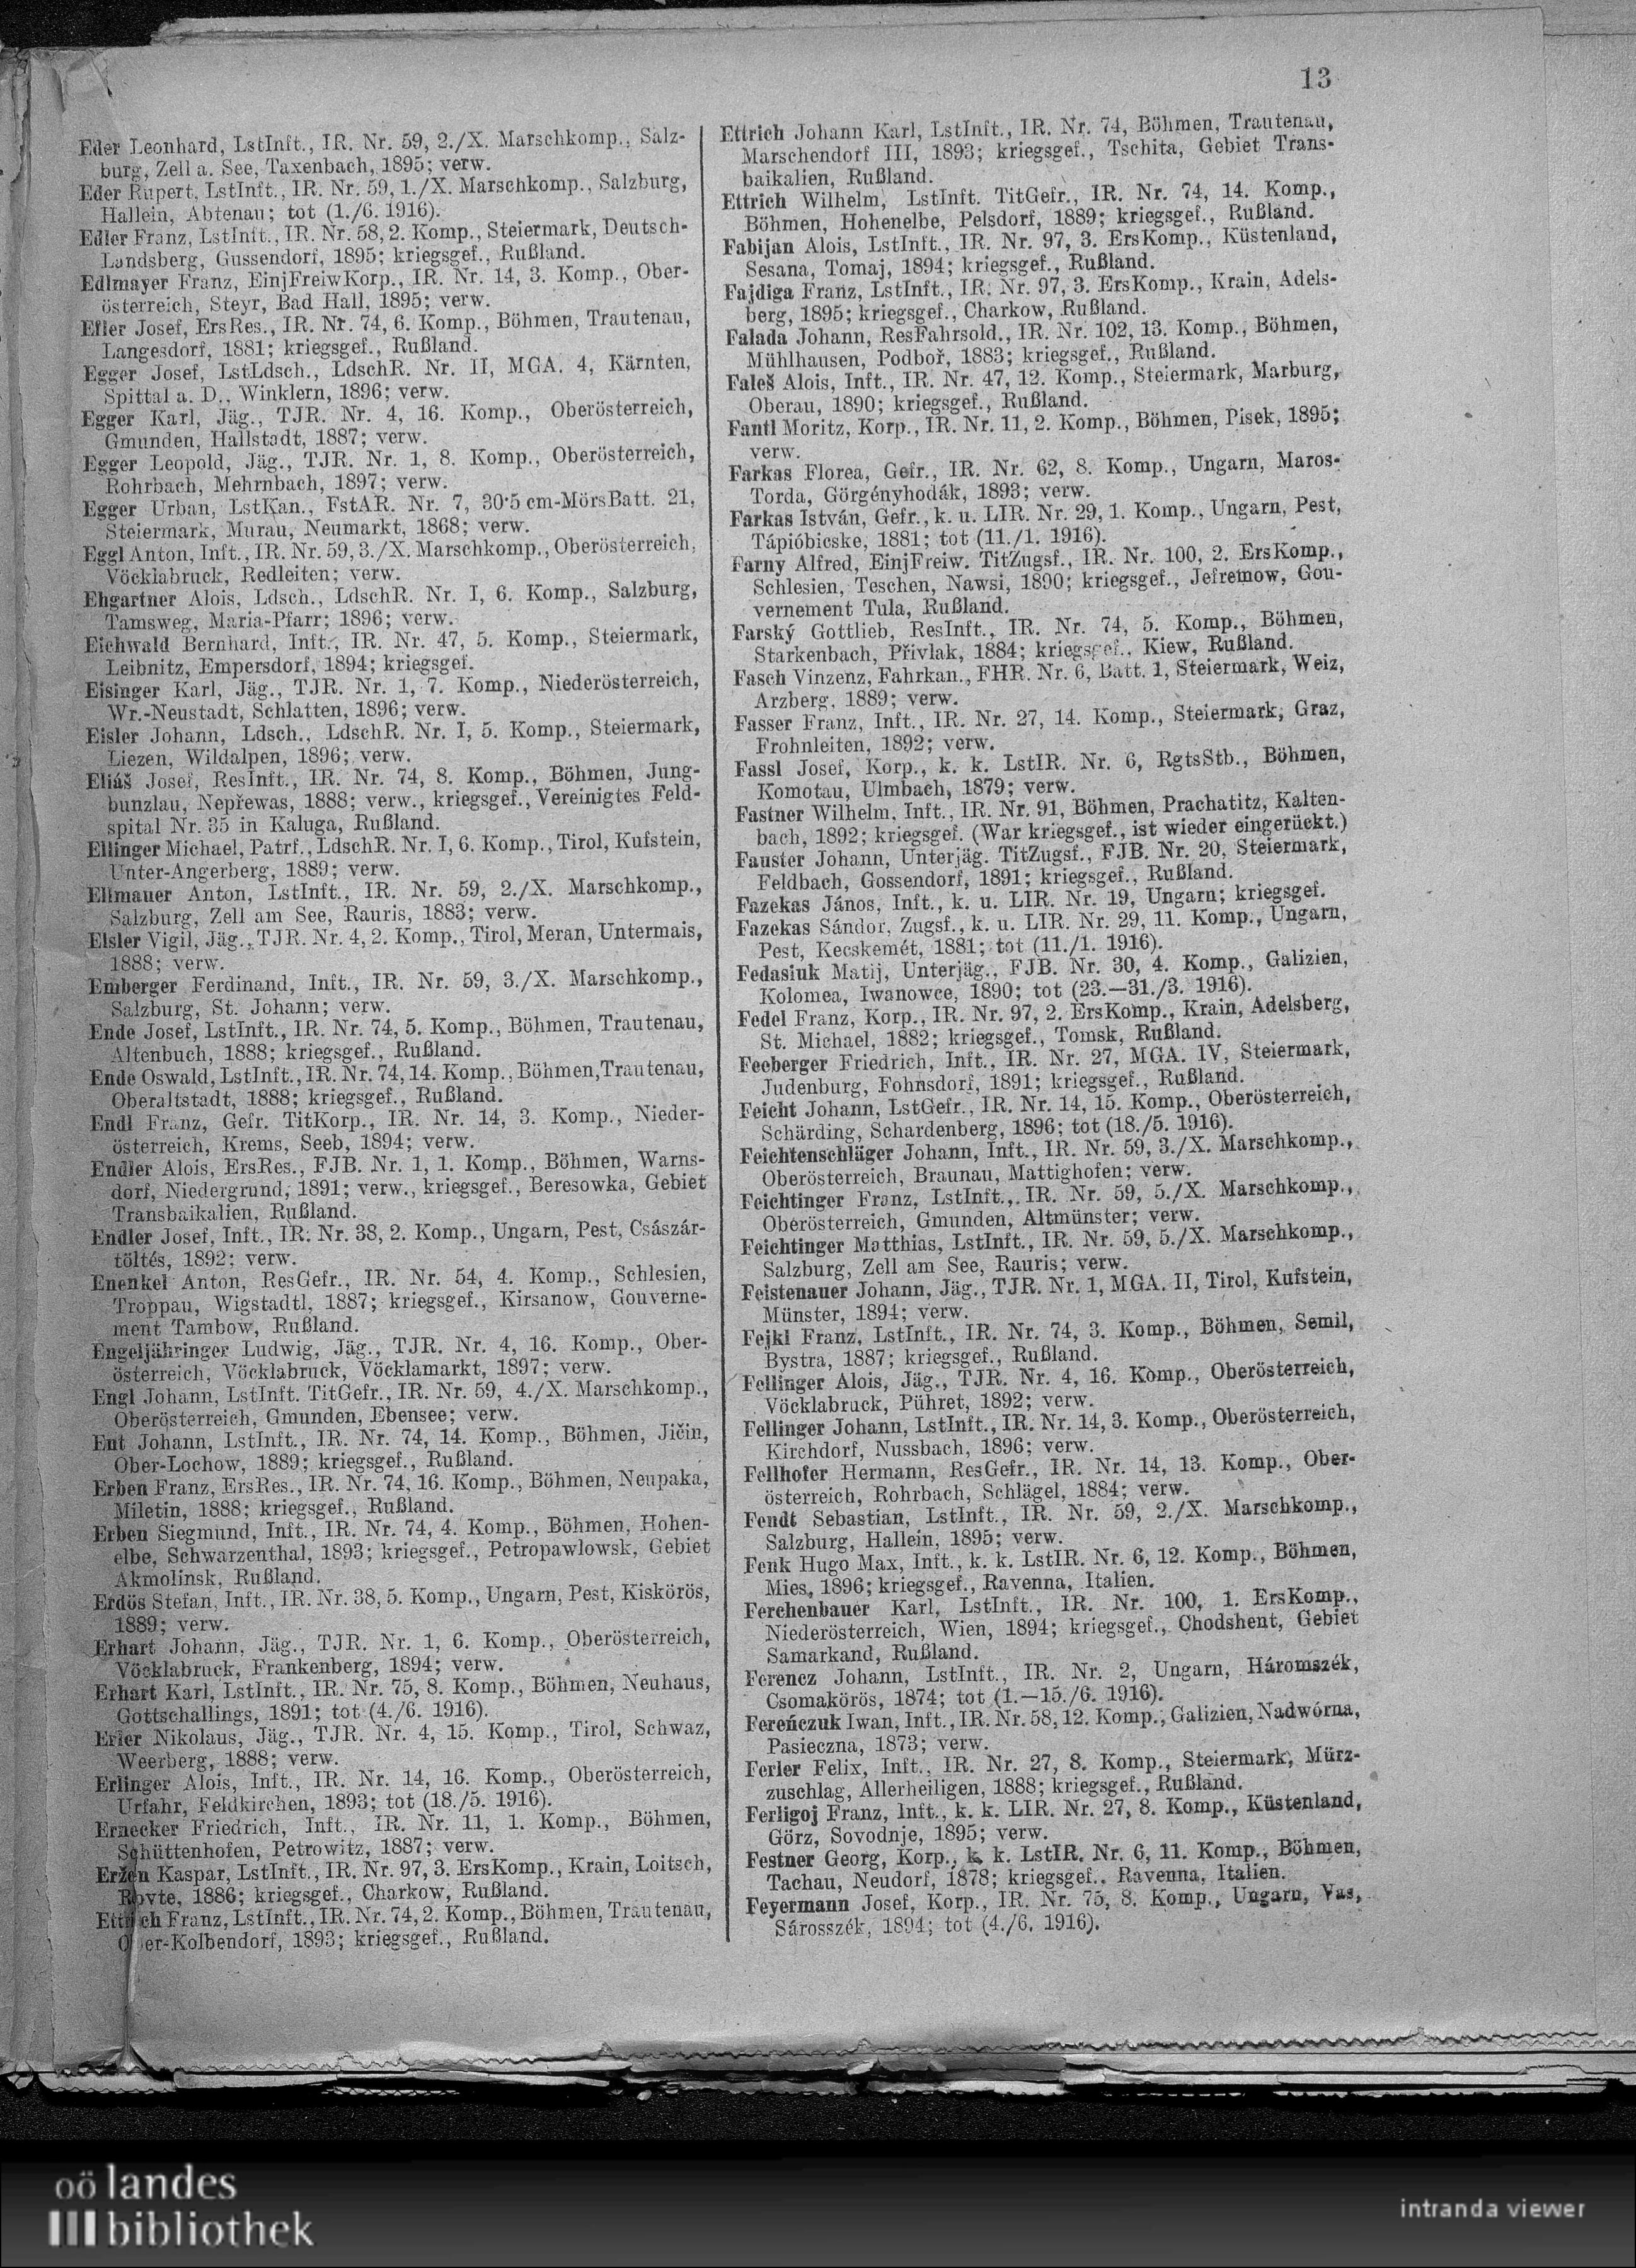 13
Eder Leonhard, LstInft., IR. Nr. 59, 2./X. Marschkomp., Salz-
burg, Zell a. See, Taxenbach, 1895; verw.
Eder Rupert, LstInft., IR. Nr. 59, 1./X. Marschkomp., Salzburg,
Hallein, Abtenau; tot (1./6. 1916).
Edler Franz, LstInft., IR. Nr. 58, 2. Komp., Steiermark, Deutsch-
Landsberg, Gussendorf, 1895; kriegsgef., Rußland.
Edlmayer Franz, EinjFreiwKorp., IR. Nr. 14, 3. Komp., Ober-
österreich, Steyr, Bad Hall, 1895; verw.
Efler Josef, ErsRes., IR. Nr. 74, 6. Komp., Böhmen, Trautenau,
Langesdorf, 1881; kriegsgef., Rußland.
Egger Josef, LstLdsch., LdschR. Nr. II, MGA. 4, Kärnten,
Spittal a. D., Winklern, 1896; verw.
Egger Karl, Jäg., TJR. Nr. 4, 16. Komp., Oberösterreich,
Gmunden, Hallstadt, 1887; verw.
Egger Leopold, Jäg., TJR. Nr. 1, 8. Komp., Oberösterreich,
Rohrbach, Mehrnbach, 1897; verw.
Egger Urban, LstKan., FstAR. Nr. 7, 30·5 cm-MörsBatt. 21,
Steiermark, Murau, Neumarkt, 1868; verw.
Eggl Anton, Inft., IR. Nr. 59, 3./X. Marschkomp., Oberösterreich,
Vöcklabruck, Redleiten; verw.
Ehgartner Alois, Ldsch., LdschR. Nr. I, 6. Komp., Salzburg,
Tamsweg, Maria-Pfarr; 1896; verw.
Eichwald Bernhard, Inft., IR. Nr. 47, 5. Komp., Steiermark,
Leibnitz, Empersdorf, 1894; kriegsgef.
Eisinger Karl, Jäg., TJR. Nr. 1, 7. Komp., Niederösterreich,
Wr.-Neustadt, Schlatten, 1896; verw.
Eisler Johann, Ldsch., LdschR. Nr. I, 5. Komp., Steiermark,
Liezen, Wildalpen, 1896; verw.
Eliáš Josef, ResInft., IR. Nr. 74, 8. Komp., Böhmen, Jung-
bunzlau, Nepřewas, 1888; verw., kriegsgef., Vereinigtes Feld-
spital Nr. 35 in Kaluga, Rußland.
Ellinger Michael, Patrf., LdschR. Nr. I, 6. Komp., Tirol, Kufstein,
Unter-Angerberg, 1889; verw.
Ellmauer Anton, LstInft., IR. Nr. 59, 2./X. Marschkomp.,
Salzburg, Zell am See, Rauris, 1883; verw.
Elsler Vigil, Jäg., TJR. Nr. 4, 2. Komp., Tirol, Meran, Untermais,
1888; verw.
Emberger Ferdinand, Inft., IR. Nr. 59, 3./X. Marschkomp.,
Salzburg, St. Johann; verw.
Ende Josef, LstInft., IR. Nr. 74, 5. Komp., Böhmen, Trautenau,
Altenbuch, 1888; kriegsgef., Rußland.
Ende Oswald, LstInft., IR. Nr. 74, 14. Komp., Böhmen, Trautenau,
Oberaltstadt, 1888; kriegsgef., Rußland.
Endl Franz, Gefr. TitKorp., IR. Nr. 14, 3. Komp., Nieder-
österreich, Krems, Seeb, 1894; verw.
Endler Alois, ErsRes., FJB. Nr. 1, 1. Komp., Böhmen, Warns-
dorf, Niedergrund, 1891; verw., kriegsgef., Beresowka, Gebiet
Transbaikalien, Rußland.
Endler Josef, Inft., IR. Nr. 38, 2. Komp., Ungarn, Pest, Császár-
töltés, 1892; verw.
Enenkel Anton, ResGefr., IR. Nr. 54, 4. Komp., Schlesien,
Troppau, Wigstadtl, 1887; kriegsgef., Kirsanow, Gouverne-
ment Tambow, Rußland.
Engeljähringer Ludwig, Jäg., TJR. Nr. 4, 16. Komp., Ober-
österreich, Vöcklabruck, Vöcklamarkt, 1897; verw.
Engl Johann, LstInft. TitGefr., IR. Nr. 59, 4./X. Marschkomp.,
Oberösterreich, Gmunden, Ebensee; verw.
Ent Johann, LstInft., IR. Nr. 74, 14. Komp., Böhmen, Jičin,
Ober-Lochow, 1889; kriegsgef., Rußland.
Erben Franz, ErsRes., IR. Nr. 74, 16. Komp., Böhmen, Neupaka,
Miletin, 1888; kriegsgef., Rußland.
Erben Siegmund, Inft., IR. Nr. 74, 4. Komp., Böhmen, Hohen-
elbe, Schwarzenthal, 1893; kriegsgef., Petropawlowsk, Gebiet
Akmolinsk, Rußland.
Erdös Stefan, Inft., IR. Nr. 38, 5. Komp., Ungarn, Pest, Kiskörös,
1889; verw.
Erhart Johann, Jäg., TJR. Nr. 1, 6. Komp., Oberösterreich,
Vöcklabruck, Frankenberg, 1894; verw.
Erhart Karl, LstInft., IR. Nr. 75, 8. Komp., Böhmen, Neuhaus,
Gottschallings, 1891; tot (4./6. 1916).
Erler Nikolaus, Jäg., TJR. Nr. 4, 15. Komp., Tirol, Schwaz,
Weerberg, 1888; verw.
Erlinger Alois, Inft., IR. Nr. 14, 16. Komp., Oberösterreich,
Urfahr, Feldkirchen, 1893; tot (18./5. 1916).
Ernecker Friedrich, Inft., IR. Nr. 11, 1. Komp., Böhmen,
Schüttenhofen, Petrowitz, 1887; verw.
Eržen Kaspar, LstInft., IR. Nr. 97, 3. ErsKomp., Krain, Loitsch,
Rovte, 1886; kriegsgef., Charkow, Rußland.
Ettrich Franz, LstInft., IR. Nr. 74, 2. Komp., Böhmen, Trautenau,
Ober-Kolbendorf, 1893; kriegsgef., Rußland.
Ettrich Johann Karl, LstInft., IR. Nr. 74, Böhmen, Trautenau,
Marschendorf III, 1893; kriegsgef., Tschita, Gebiet Trans-
baikalien, Rußland.
Ettrich Wilhelm, LstInft. TitGefr., IR. Nr. 74, 14. Komp.,
Böhmen, Hohenelbe, Pelsdorf, 1889; kriegsgef., Rußland.
Fabijan Alois, LstInft., IR. Nr. 97, 3. ErsKomp., Küstenland,
Sesana, Tomaj, 1894; kriegsgef., Rußland.
Fajdiga Franz, LstInft., IR. Nr. 97, 3. ErsKomp., Krain, Adels-
berg, 1895; kriegsgef., Charkow, Rußland.
Falada Johann, ResFahrsold., IR. Nr. 102, 13. Komp., Böhmen,
Mühlhausen, Podboř, 1883; kriegsgef., Rußland.
Faleš Alois, Inft., IR. Nr. 47, 12. Komp., Steiermark, Marburg,
Oberau, 1890; kriegsgef., Rußland.
Fantl Moritz, Korp., IR. Nr. 11, 2. Komp., Böhmen, Pisek, 1895;
verw.
Farkas Florea, Gefr., IR. Nr. 62, 8. Komp., Ungarn, Maros-
Torda, Görgényhodák, 1893; verw.
Farkas István, Gefr., k. u. LIR. Nr. 29, 1. Komp., Ungarn, Pest,
Tápióbicske, 1881; tot (11./1. 1916).
Farny Alfred, EinjFreiw. TitZugsf., IR. Nr. 100, 2. ErsKomp.,
Schlesien, Teschen, Nawsi, 1890; kriegsgef., Jefremow, Gou-
vernement Tula, Rußland.
Farský Gottlieb, ResInft., IR. Nr. 74, 5. Komp., Böhmen,
Starkenbach, Přivlak, 1884; kriegsgef., Kiew, Rußland.
Fasch Vinzenz, Fahrkan., FHR. Nr. 6, Batt. 1, Steiermark, Weiz,
Arzberg, 1889; verw.
Fasser Franz, Inft., IR. Nr. 27, 14. Komp., Steiermark, Graz,
Frohnleiten, 1892; verw.
Fassl Josef, Korp., k. k. LstIR. Nr. 6, RgtsStb., Böhmen,
Komotau, Ulmbach, 1879; verw.
Fastner Wilhelm, Inft., IR. Nr. 91, Böhmen, Prachatitz, Kalten-
bach, 1892; kriegsgef. (War kriegsgef., ist wieder eingerückt.)
Fauster Johann, Unterjäg. TitZugsf., FJB. Nr. 20, Steiermark,
Feldbach, Gossendorf, 1891; kriegsgef., Rußland.
Fazekas János, Inft., k. u. LIR. Nr. 19, Ungarn; kriegsgef.
Fazekas Sándor, Zugsf., k. u. LIR. Nr. 29, 11. Komp., Ungarn,
Pest, Kecskemét, 1881; tot (11./1. 1916).
Fedasiuk Matij, Unterjäg., FJB. Nr. 30, 4. Komp., Galizien,
Kolomea, Iwanowce, 1890; tot (23.—31./3. 1916).
Fedel Franz, Korp., IR. Nr. 97, 2. ErsKomp., Krain, Adelsberg,
St. Michael, 1882; kriegsgef., Tomsk, Rußland.
Feeberger Friedrich, Inft., IR. Nr. 27, MGA. IV, Steiermark,
Judenburg, Fohnsdorf, 1891; kriegsgef., Rußland.
Feicht Johann, LstGefr., IR. Nr. 14, 15. Komp., Oberösterreich,
Schärding, Schardenberg, 1896; tot (18./5. 1916).
Feichtenschläger Johann, Inft., IR. Nr. 59, 3./X. Marschkomp.,
Oberösterreich, Braunau, Mattighofen; verw.
Feichtinger Franz, LstInft., IR. Nr. 59, 5./X. Marschkomp.,
Oberösterreich, Gmunden, Altmünster; verw.
Feichtinger Matthias, LstInft., IR. Nr. 59, 5./X. Marschkomp.,
Salzburg, Zell am See, Rauris; verw.
Feistenauer Johann, Jäg., TJR. Nr. 1, MGA. II, Tirol, Kufstein,
Münster, 1894; verw.
Fejkl Franz, LstInft., IR. Nr. 74, 3. Komp., Böhmen, Semil,
Bystra, 1887; kriegsgef., Rußland.
Fellinger Alois, Jäg., TJR. Nr. 4, 16. Komp., Oberösterreich,
Vöcklabruck, Pühret, 1892; verw.
Fellinger Johann, LstInft., IR. Nr. 14, 3. Komp., Oberösterreich,
Kirchdorf, Nussbach, 1896; verw.
Fellhofer Hermann, ResGefr., IR. Nr. 14, 13. Komp., Ober-
österreich, Rohrbach, Schlägel, 1884; verw.
Fendt Sebastian, LstInft., IR. Nr. 59, 2./X. Marschkomp.,
Salzburg, Hallein, 1895; verw.
Fenk Hugo Max, Inft., k. k. LstIR. Nr. 6, 12. Komp., Böhmen,
Mies, 1896; kriegsgef., Ravenna, Italien.
Ferchenbauer Karl, LstInft., IR. Nr. 100, 1. ErsKomp.,
Niederösterreich, Wien, 1894; kriegsgef., Chodshent, Gebiet
Samarkand, Rußland.
Ferencz Johann, LstInft., IR. Nr. 2, Ungarn, Háromszék,
Csomakörös, 1874; tot (1.—15./6. 1916).
Fereńczuk Iwan, Inft., IR. Nr. 58, 12. Komp., Galizien, Nadwórna,
Pasieczna, 1873; verw.
Ferler Felix, Inft., IR. Nr. 27, 8. Komp., Steiermark, Mürz-
zuschlag, Allerheiligen, 1888; kriegsgef., Rußland.
Ferligoj Franz, Inft., k. k. LIR. Nr. 27, 8. Komp., Küstenland,
Görz, Sovodnje, 1895; verw.
Festner Georg, Korp., k. k. LstIR. Nr. 6, 11. Komp., Böhmen,
Tachau, Neudorf, 1878; kriegsgef., Ravenna, Italien.
Feyermann Josef, Korp., IR. Nr. 75, 8. Komp., Ungarn, Vas,
Sárosszék, 1894; tot (4./6. 1916).
oö landes
bibliothek
intranda viewer